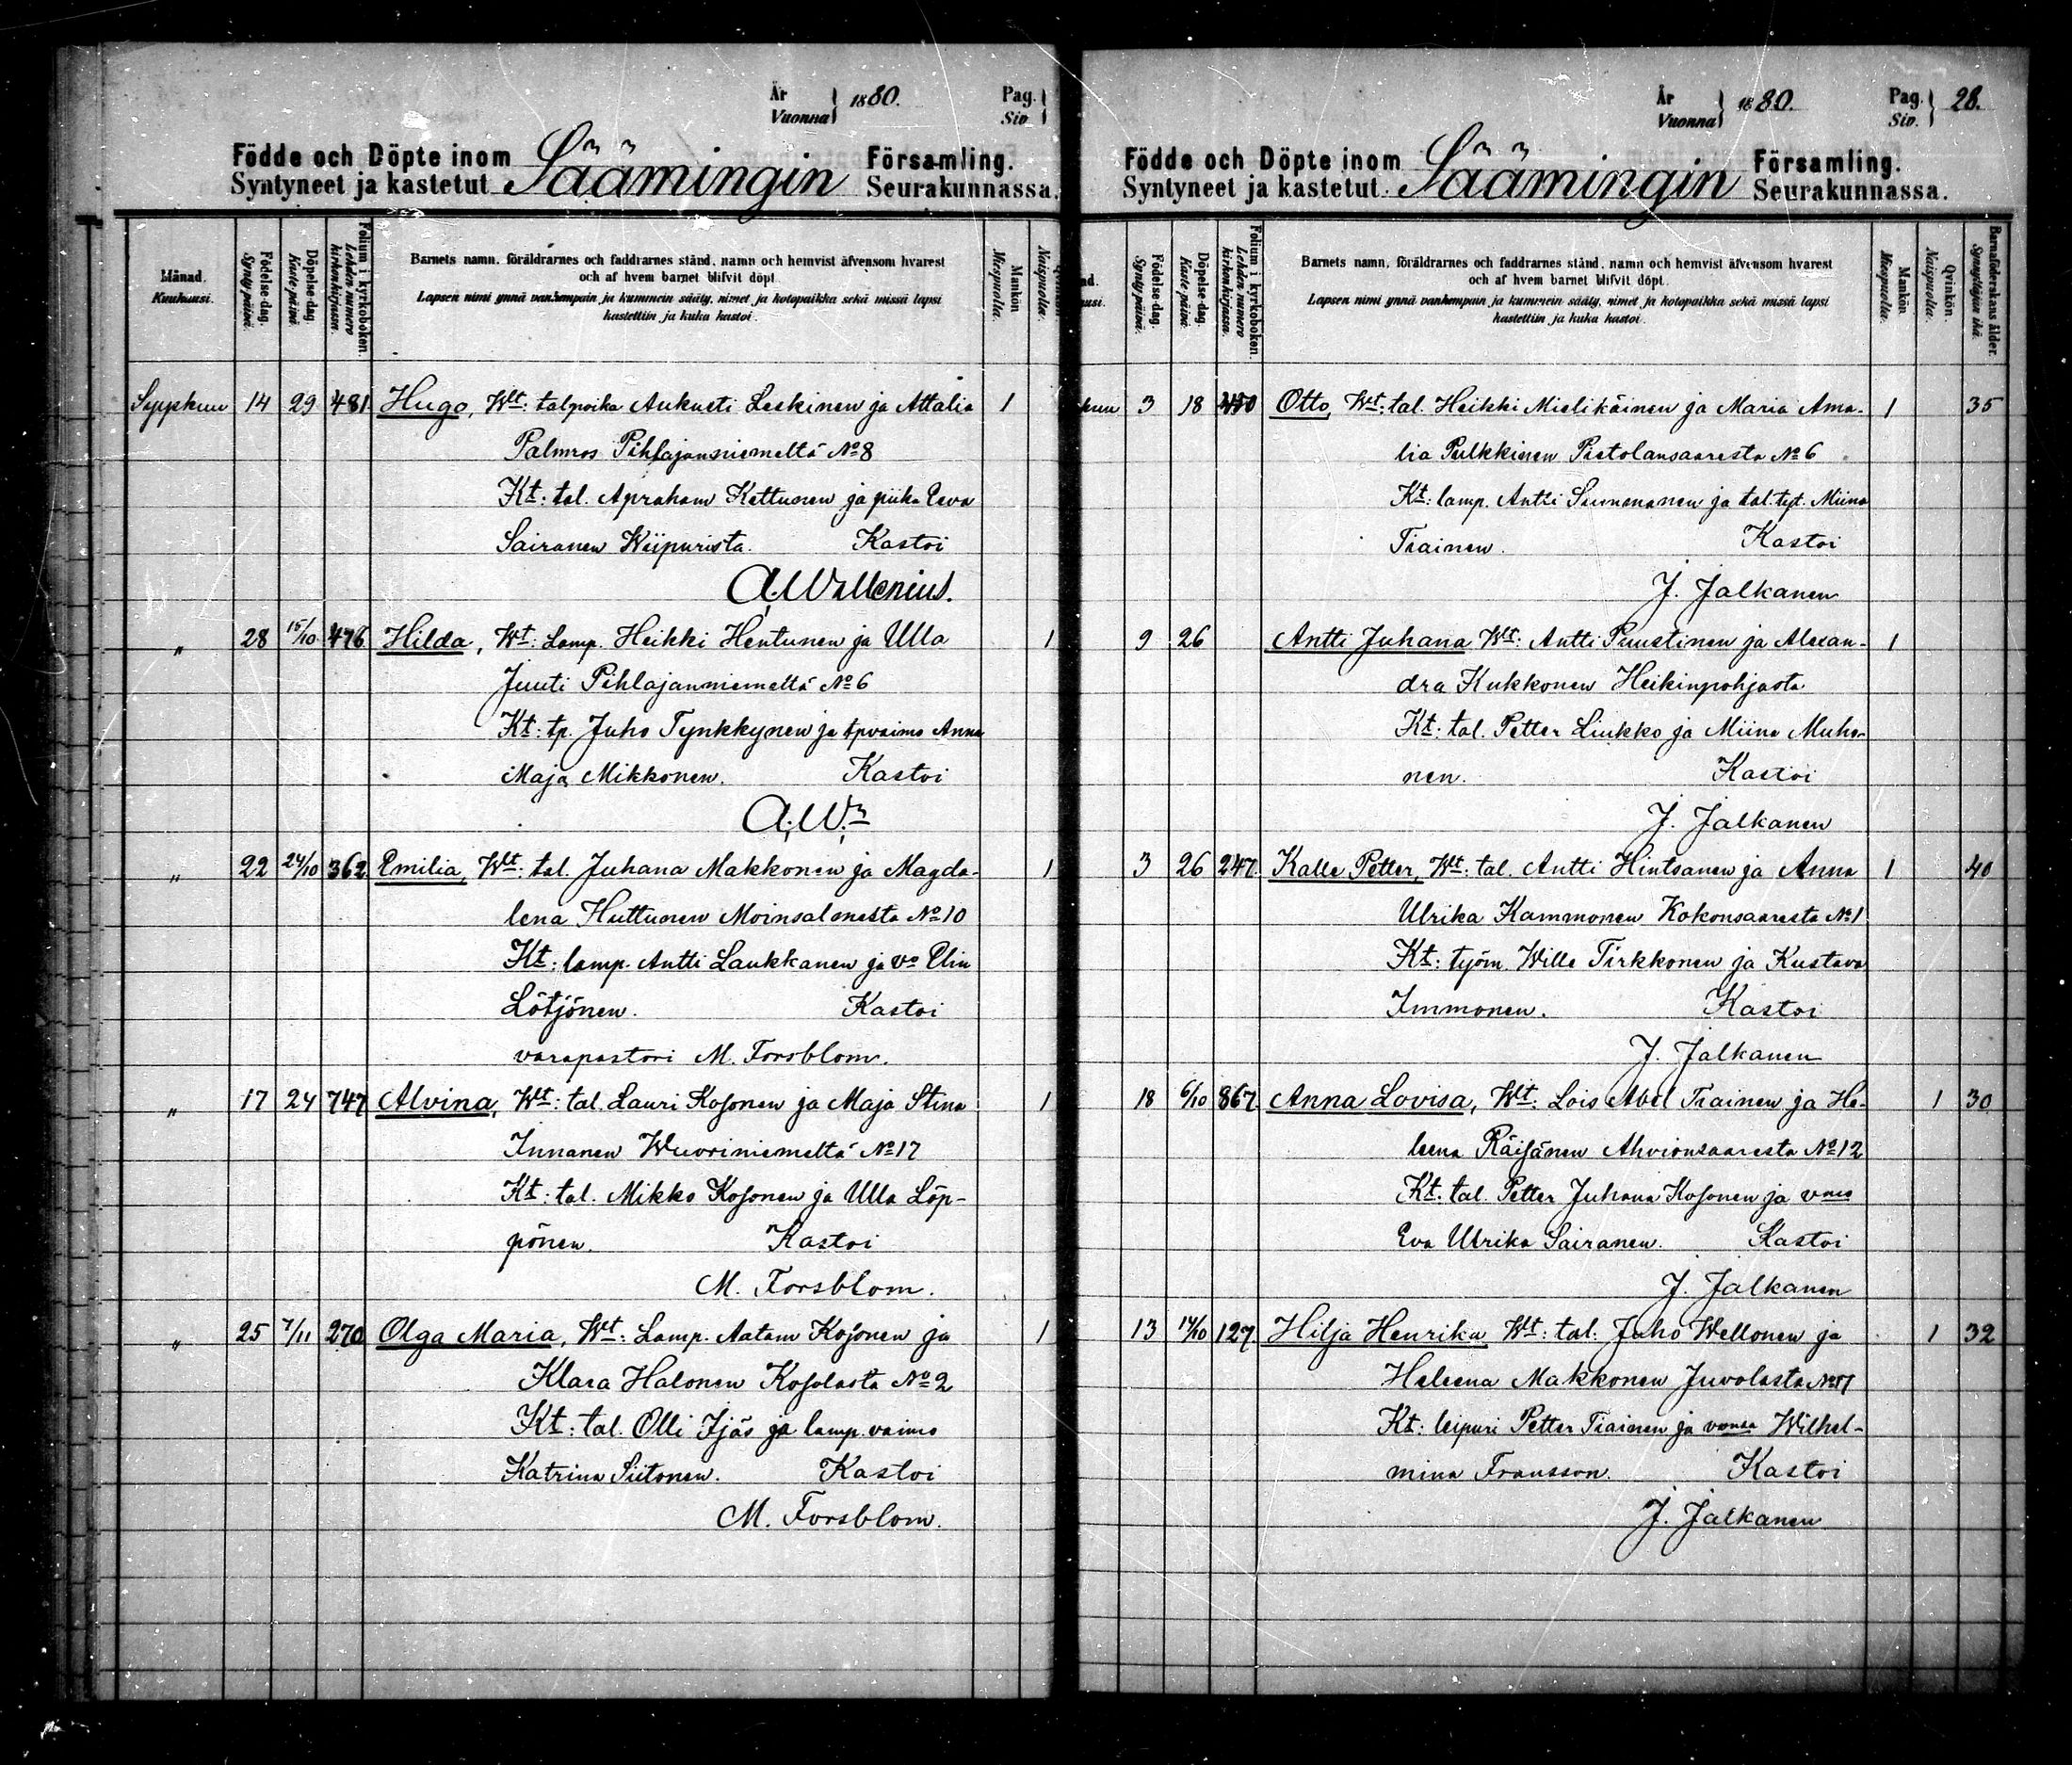 År
Vuonna } 1880.
Pag.
Siv. }
Födde och Döpte inom Säämingin Församling.
Syntyneet ja kastetut Seurakunnassa.
Månad.
Kuukausi.
Födelse-dag.
Synty päivä.
Döpelse-dag.
Kaste päivä.
Folium i kyrkoboken.
Lehden numero kirkonkirjassa.
Barnets namn, föräldrarnes och faddrarnes stånd, namn och hemvist äfvensom hvarest
och af hvem barnet blifvit döpt.
Lapsen nimi ynnä vanhempain ja kummein sääty, nimet ja kotopaikka sekä missä lapsi
kastettiin ja kuka kastoi.
Mankön
Miespuolia.
Naispuolia.
Syyskuu 14 29 481 Hugo, Wt: talpoika Aukusti Leskinen ja Attalia 1
Palmros Pihlajanniemeltä No 8
Kt: tal. Apraham Kettunen ja piika Eeva
Sairanen Wiipurista. Kastoi
A. Wallenius.
" 28 15/10 476 Hilda, Wt: Lamp. Heikki Hentunen ja Ulla 1
Juuti Pihlajanniemeltä No 6
Kt: tp. Juho Tynkkynen ja tpvaimo Anna
Maja Mikkonen. Kastoi
A. W.
" 22 24/10 362 Emilia, Wt: tal. Juhana Makkonen ja Magda- 1
lena Huttunen Moinsalmesta No 10
Kt: lamp. Antti Laukkanen ja vo Elin
Lötjönen. Kastoi
varapastori M. Forsblom.
" 17 24 747 Alvina, Wt: tal. Lauri Kosonen ja Maja Stina 1
Innanen Wuoriniemeltä No 17
Kt: tal. Mikko Kosonen ja Ulla Löp-
pönen. Kastoi
M. Forsblom.
" 25 7/11 270 Olga Maria, Wt: Lamp. Aatam Kosonen ja 1
Klara Halonen Kosolasta No 2
Kt: tal. Olli Ijäs ja lamp. vaimo
Katrina Siitonen. Kastoi
M. Forsblom.
År
Vuonna } 1880.
Pag.
Siv. } 28.
Födde och Döpte inom Säämingin Församling.
Syntyneet ja kastetut Seurakunnassa.
Födelse-dag.
Synty päivä.
Döpelse-dag.
Kaste päivä.
Folium i kyrkoboken.
Lehden numero kirkonkirjassa.
Barnets namn, föräldrarnes och faddrarnes stånd, namn och hemvist äfvensom hvarest
och af hvem barnet blifvit döpt.
Lapsen nimi ynnä vanhempain ja kummein sääty, nimet ja kotopaikka sekä missä lapsi
kastettiin ja kuka kastoi.
Mankön
Miespuolia.
Qvinkön.
Naispuolia.
Barnaföderskans ålder.
Synnyttäjän ikä.
kuu 3 18 Otto, Wt: tal. Heikki Mielikäinen ja Maria Ama- 1 35
lia Pulkkinen Pietolansaaresta No 6
Kt: lamp. Antti Summanen ja tal. tyt. Miina
Tiainen. Kastoi
J. Jalkanen
9 26 Antti Juhana Wt: Antti Puustinen ja Alexan- 1
dra Kukkonen Heikinpohjasta
Kt: tal. Petter Liukko ja Miina Muho-
nen. Kastoi
J. Jalkanen
3 26 247 Kalle Petter, Wt: tal. Antti Hintsanen ja Anna 1 40
Ulrika Kammonen Kokonsaaresta No 1
Kt: työm. Wille Tirkkonen ja Kustava
Immonen. Kastoi
J. Jalkanen
18 6/10 867 Anna Lovisa, Wt: Lois Abel Tiainen ja He- 1 30
leena Räisänen Ahvionsaaresta No 12
Kt: tal. Petter Juhana Kosonen ja vmo
Eva Ulrika Sairanen. Kastoi
J. Jalkanen
13 127 Hilja Henrika Wt: tal. Juho Wellonen ja 1 32
Heleena Makkonen Juvolasta
Kt: leipuri Petter Tiainen ja vonsa Wilhel-
mina Fransson. Kastoi
J. Jalkanen